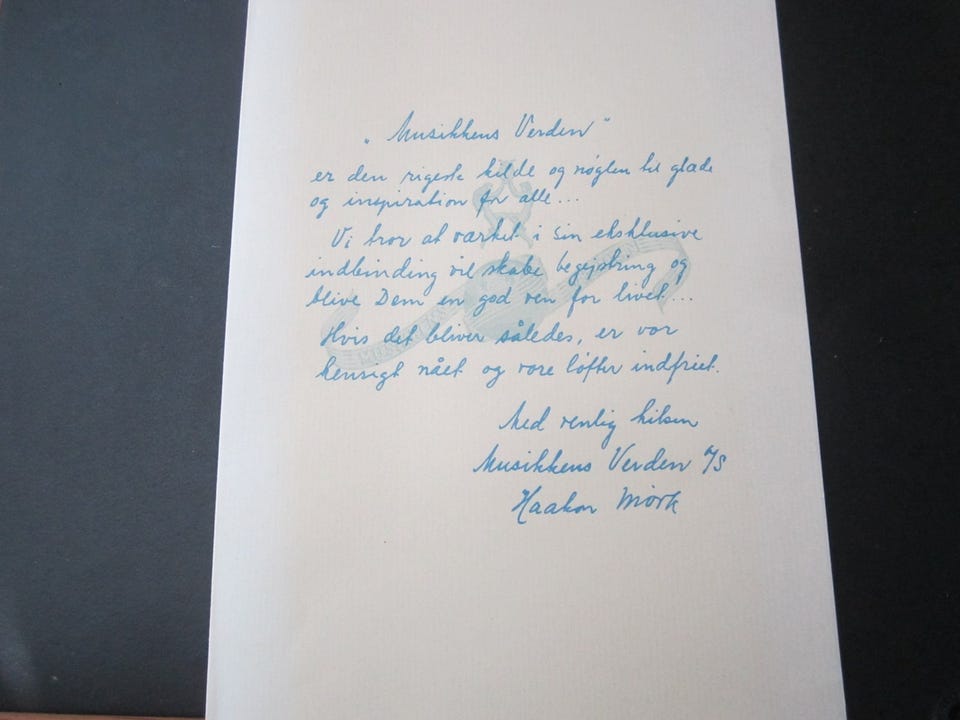 „Musikkens Verden"
er den rigeste kilde og nøglen til glæde
og inspiration for alle...
Vi tror at værket i sin eksklusive
indbinding vil skabe begejstring og
blive Dem en god ven for livet...
Hvis det bliver således, er vor
hensigt nået og vore løfter indfriet.
Med venlig hilsen
Musikkens Verden A/S
Haakon Mörk